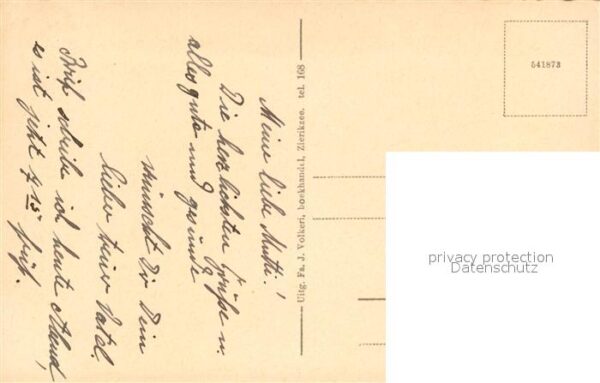 Meine liebe Mutti!
Die herzlichsten Grüße u.
alles gute und
wünscht Dir Dein
lieber treuer
Brief schreibe ich heute Abend,
es ist jetzt 7 15 früh.
Uitg. Fa. J. Volkeri, boekhandel, Zierikzee. tel. 168
541873
privacy protection
Datenschutz